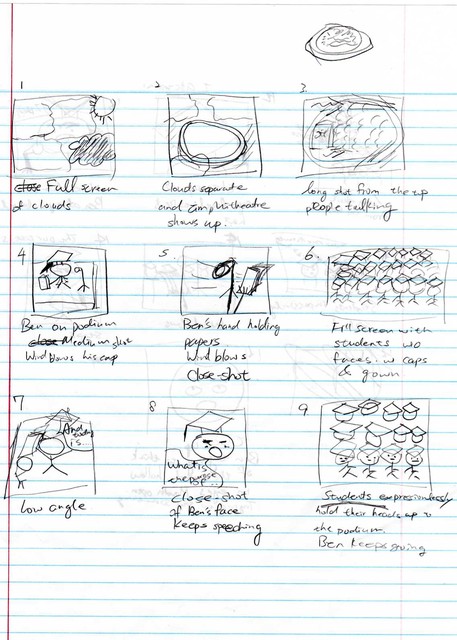 1
2
3.
close Full screen
of clouds
Clouds separate
and amphitheatre
shows up.
long shot from the up
people talking
4
5.
6.
Ben on podium
close Medium shot
Wind blows his cap
Ben's hand holding
papers
Wind blows
close-shot
Fill screen with
students wo
faces. w caps
& gown
7
8
9
And
is.
What is
the purpose
of..
low angle
close-shot
of Ben's face
Keeps speeching
Students expresionlessly
hold their heads up to
the podium.
Ben keeps going